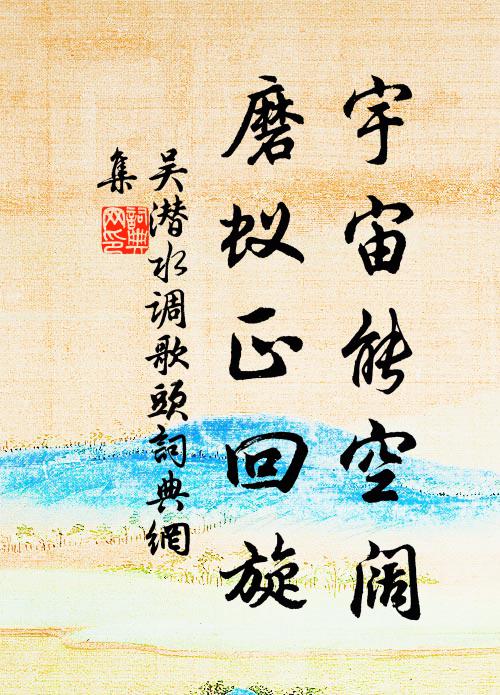 宇宙能空阔
磨蚁正回旋
吴潜水调歌头詞典網
集
詞典网印